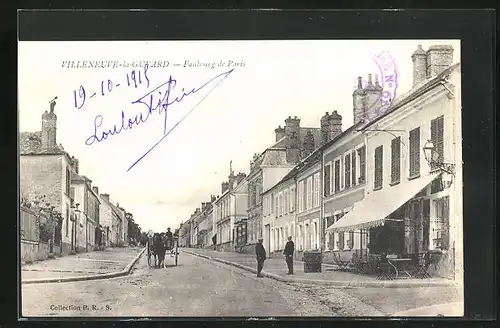 VILLENEUVE-la-GUYARD. — Faubourg de Paris
19-10 1915
Collection P. R. - S.